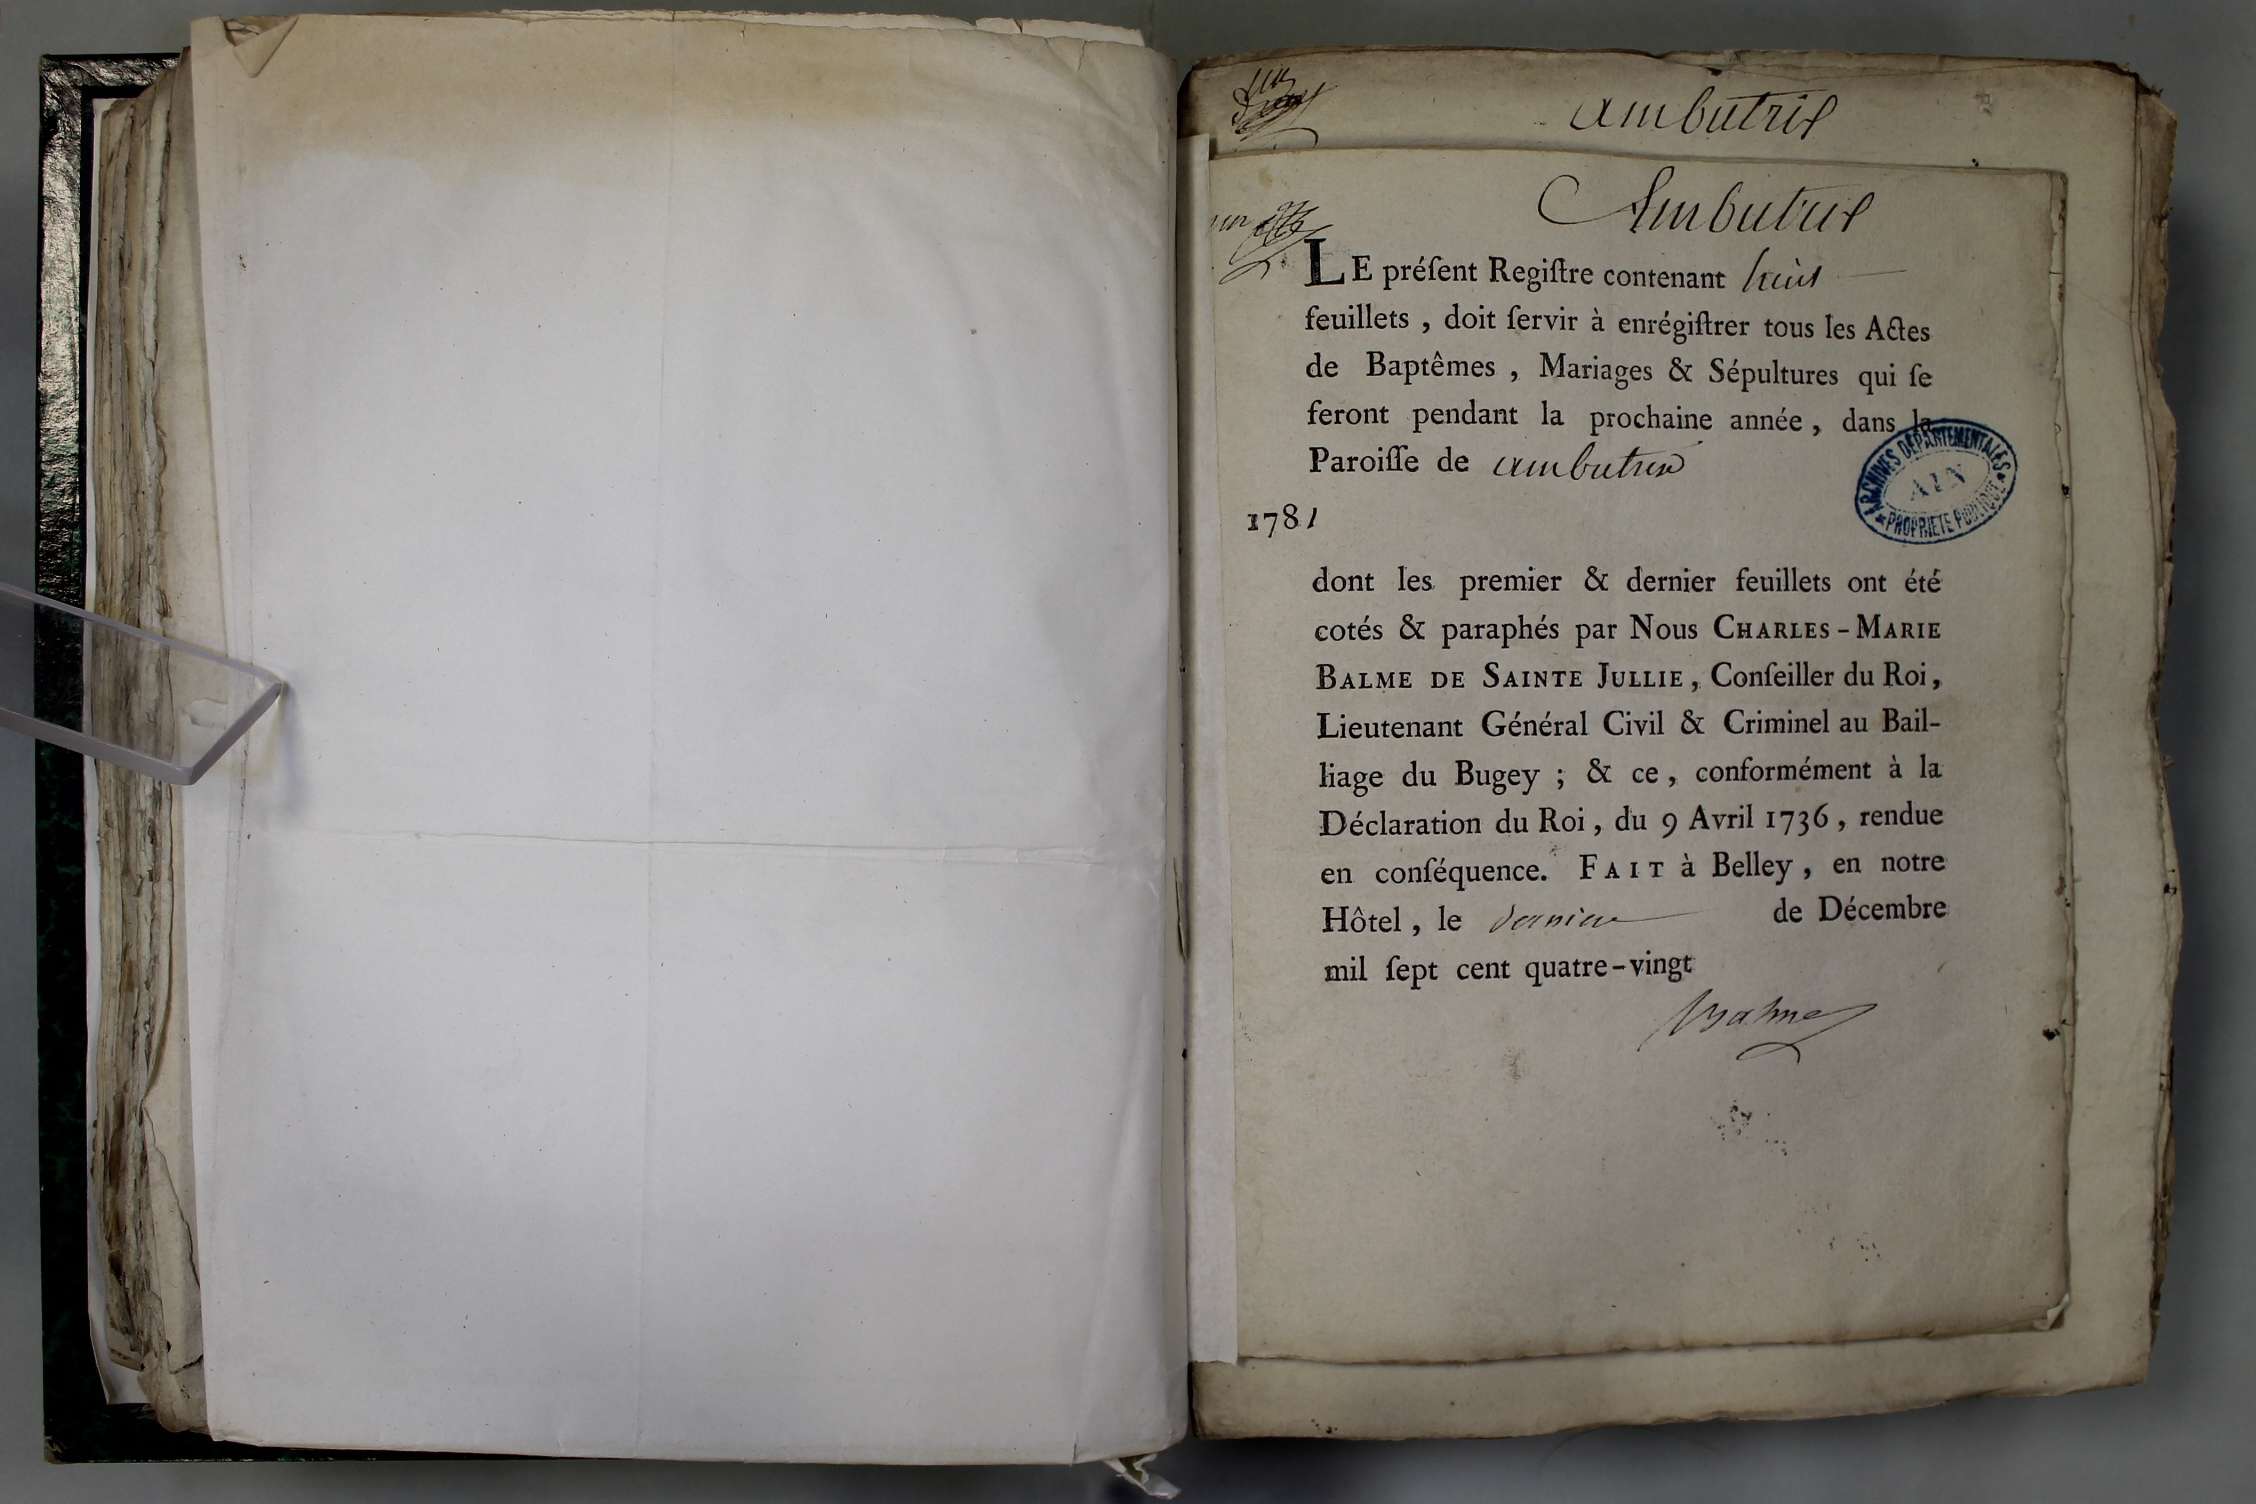 un
ambutrix
Ambutrix
un
LE préſent Regiſtre contenant huit
feuillets , doit ſervir à enrégiſtrer tous les Actes
de Baptêmes , Mariages & Sépultures qui ſe
feront pendant la prochaine année , dans la
Paroiſſe de ambutrix
ARCHIVES DÉPARTEMENTALES
AIN
PROPRIÉTÉ PUBLIQUE
1781
dont les premier & dernier feuillets ont été
cotés & paraphés par Nous CHARLES-MARIE
BALME DE SAINTE JULLIE, Conſeiller du Roi,
Lieutenant Général Civil & Criminel au Bail-
liage du Bugey ; & ce , conformément à la
Déclaration du Roi , du 9 Avril 1736 , rendue
en conſéquence. FAIT à Belley , en notre
Hôtel , le dernier de Décembre
mil ſept cent quatre-vingt
Balme